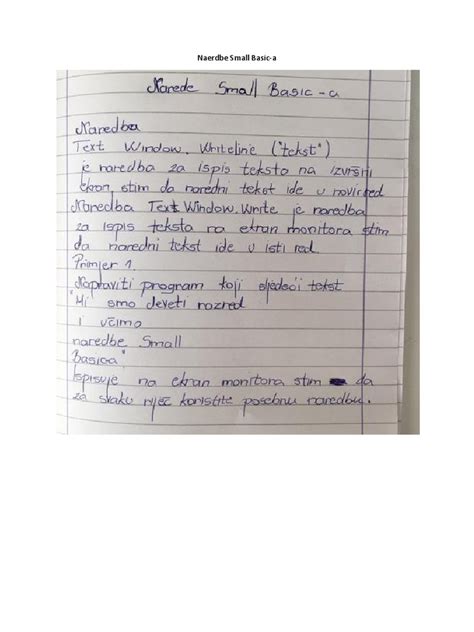 Naerdbe Small Basic-a
Narede Small Basic-a
Naredba
Text Window. Writeline ("tekst")
je naredba za ispis teksta na izvršni
ekran, stim da naredni tekst ide u novi red
Naredba Text Window. Write je naredba
za ispis teksta na ekran monitora stim
da naredni tekst ide u isti red.
Primjer 1.
Napraviti program koji sljedeći tekst
"Mi smo deveti rozred
i včimo
naredbe Small
Basica"
Ispisuje na ekran monitora stim da
za svaku riječ koristite posebnu naredbu.